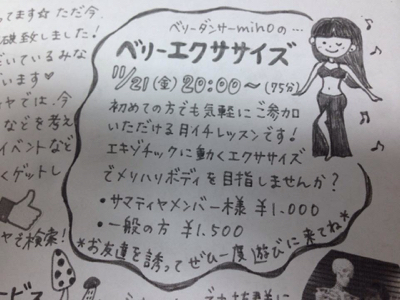 てます☆ ただ今
破致しました!
だいているみな
います♥
ャでは、今
などを考え
イベントなど
くゲットし
ヤで検索!
ベリーダンサーmihoの…
ベリーエクササイズ
11/21(金) 20:00〜(75分)
初めての方でも気軽にご参加
いただける月イチレッスンです!
エキゾチックに動くエクササイズ
でメリハリボディを目指しませんか?
・サマティヤメンバー様 ¥1.000
・一般の方 ¥1.500
*お友達を誘ってぜひ一度遊びに来てね*